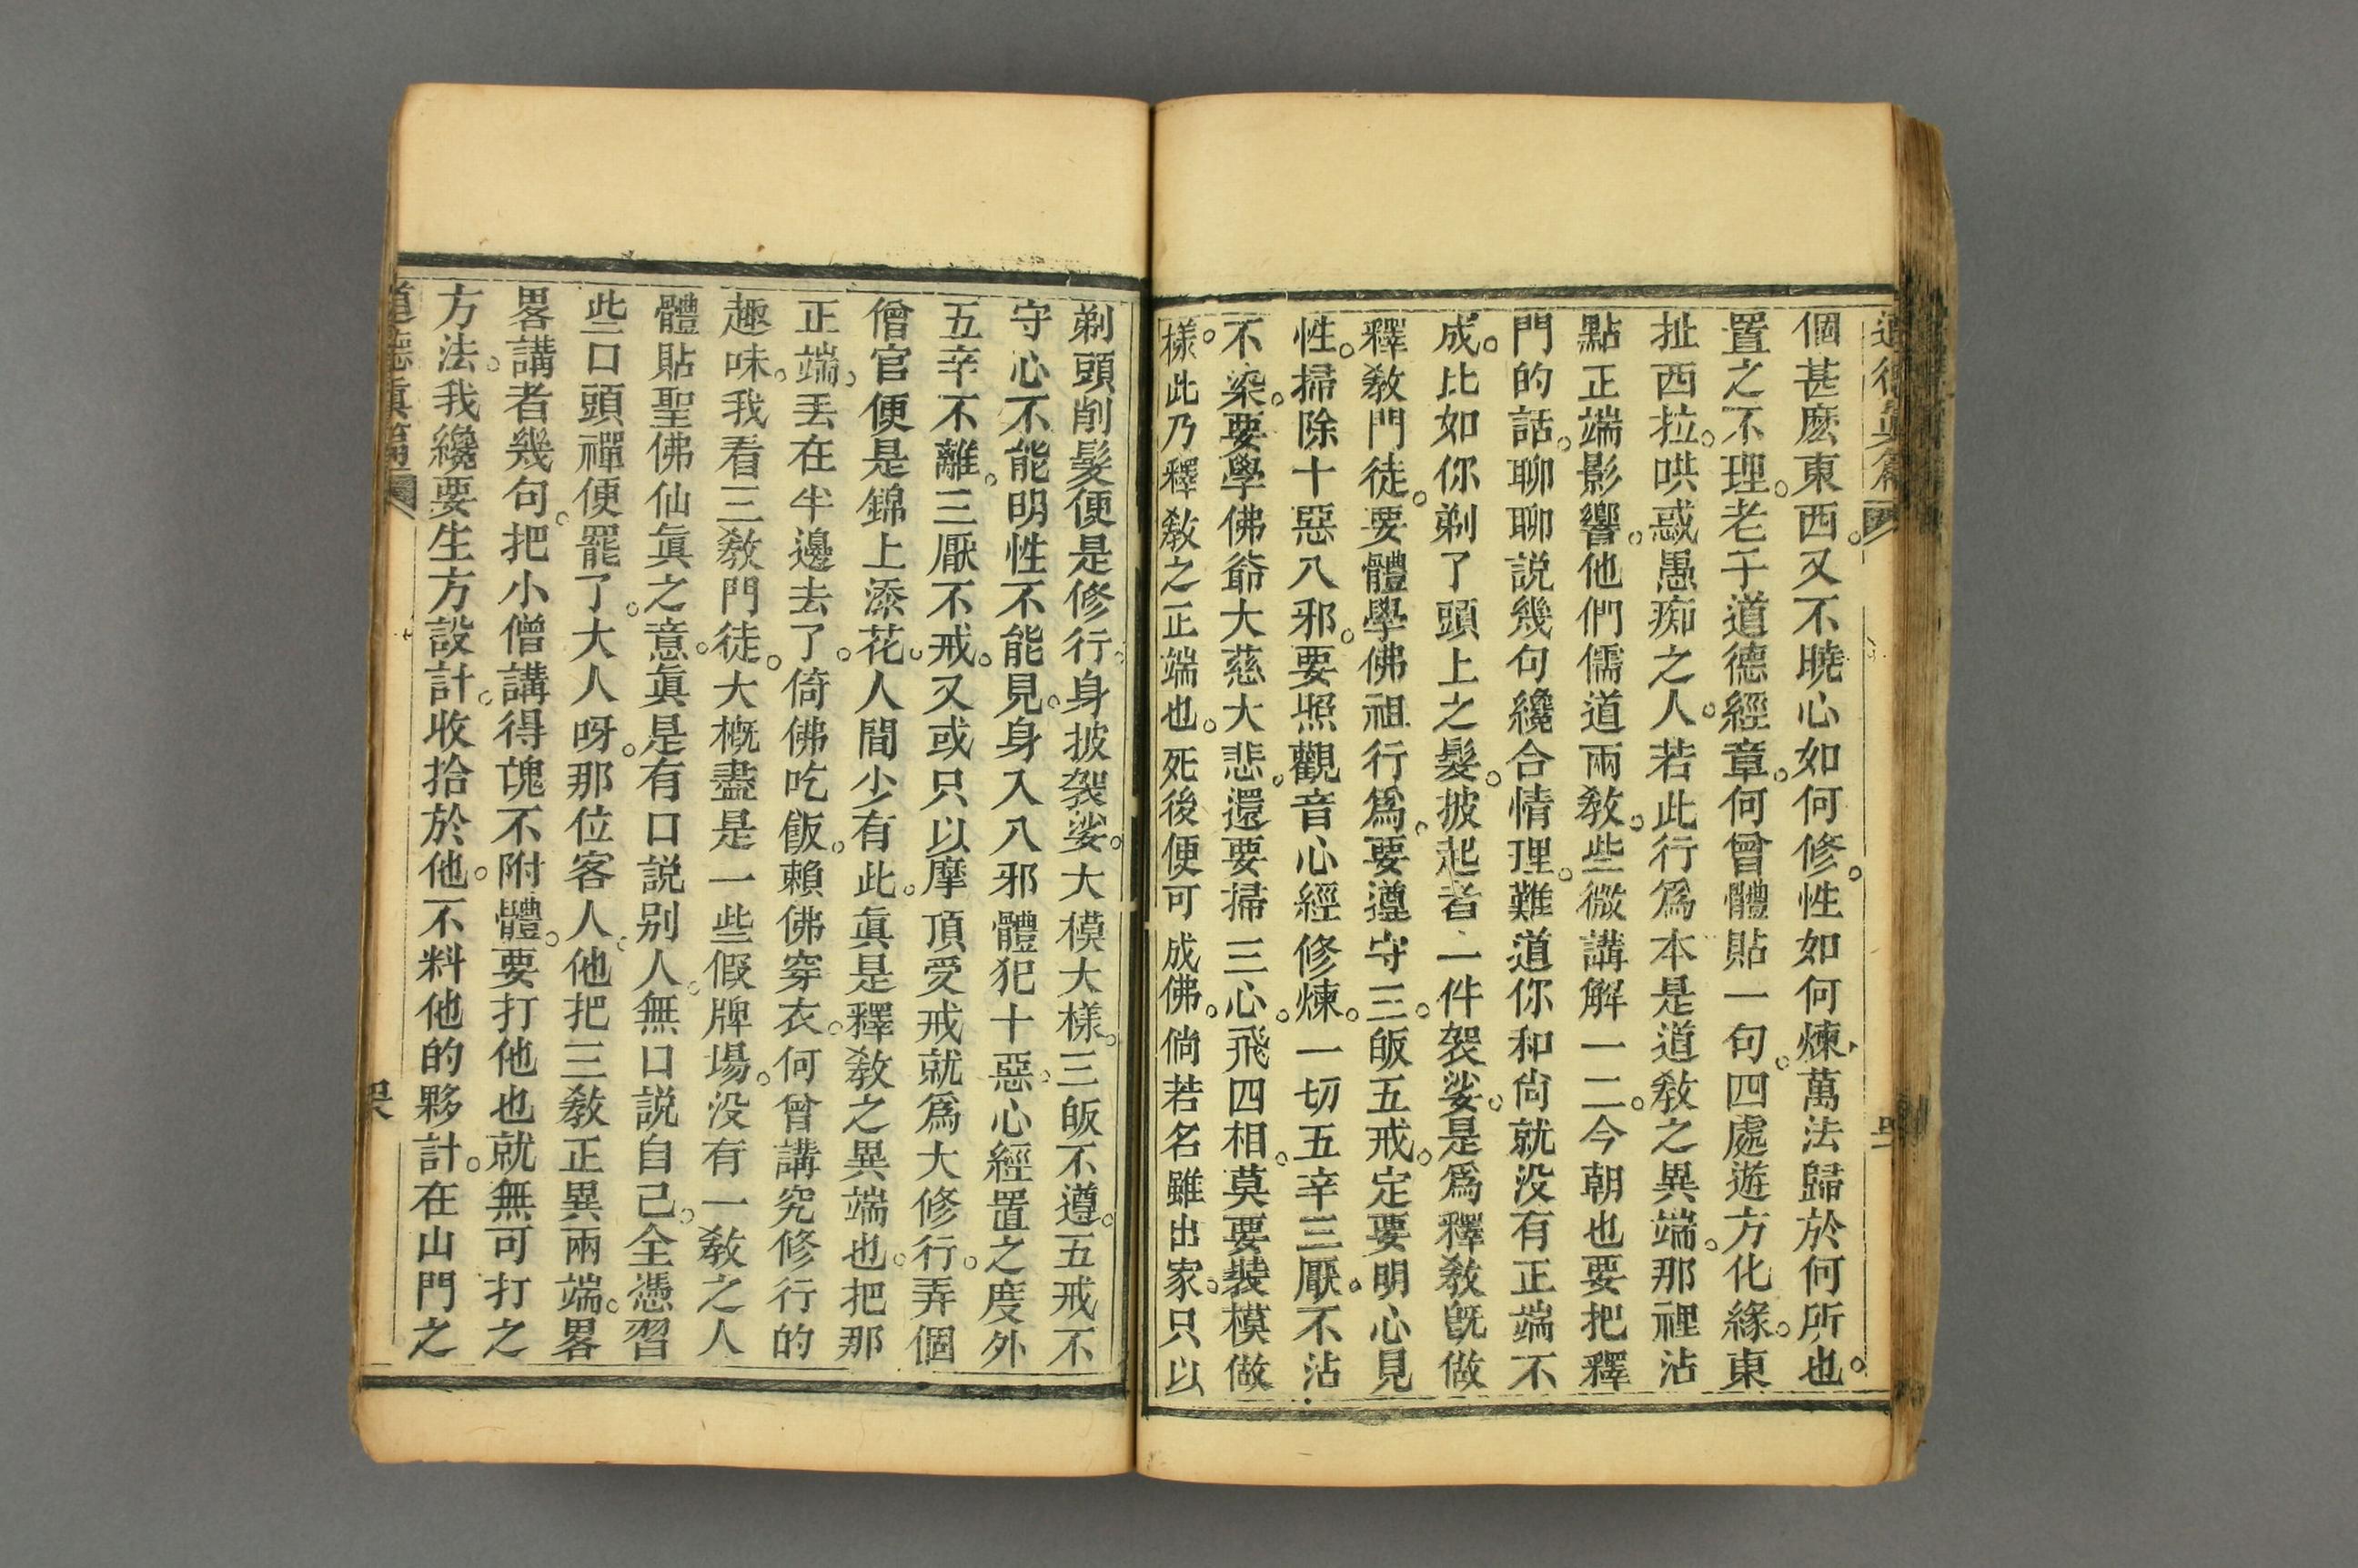 個甚麽東西。又不曉心如何修。性如何煉、萬法歸於何所也。
置之不理。老子道德經章。何曾體貼一句。四處遊方化緣。東
扯西拉。哄惑愚痴之人。若此行爲本是道敎之異端。那裡沾
點正端影響。他們儒道兩敎。些微講解一二。今朝也要把釋
門的話。聊聊説幾句纔合情理。難道你和尙就没有正端不
成。比如你剃了頭上之髮。披起者一件袈裟。是爲釋敎旣做
釋敎門徒。要體學佛祖行爲。要遵守三。皈五戒。定要明心見
性。掃除十惡八邪。要照觀音心經修煉。一切五辛三厭。不沾
不染。要學佛爺大慈大悲。還要掃三心。飛四相。莫要裝模做
樣。此乃釋敎之正端也。死後便可成佛。倘若名雖出家。只以
剃頭削髮便是修行。身披袈裟。大模大樣。三皈不遵。五戒不
守心不能明性不能見。身入八邪體犯十惡。心經置之度外
五辛不離。三厭不戒。又或只以摩頂受戒就爲大修行。弄個
僧官便是錦上添花。人間少有此。眞是釋敎之異端也。把那
正端。丟在半邊去了。倚佛吃飯。賴佛穿衣。何曾講究修行的
趣味。我看三敎門徒。大槪盡是一些假牌場。没有一敎之人
體貼聖佛仙眞之意。眞是有口説别人。無口説自己。全憑習
些口頭禪便罷了。大人呀。那位客人。他把三敎正異兩端。畧
畧講者幾句。把小僧講得魂不附體。要打他也就無可打之
方法。我纔要生方設計。收拾於他。不料他的夥計。在山門之
道德眞篇